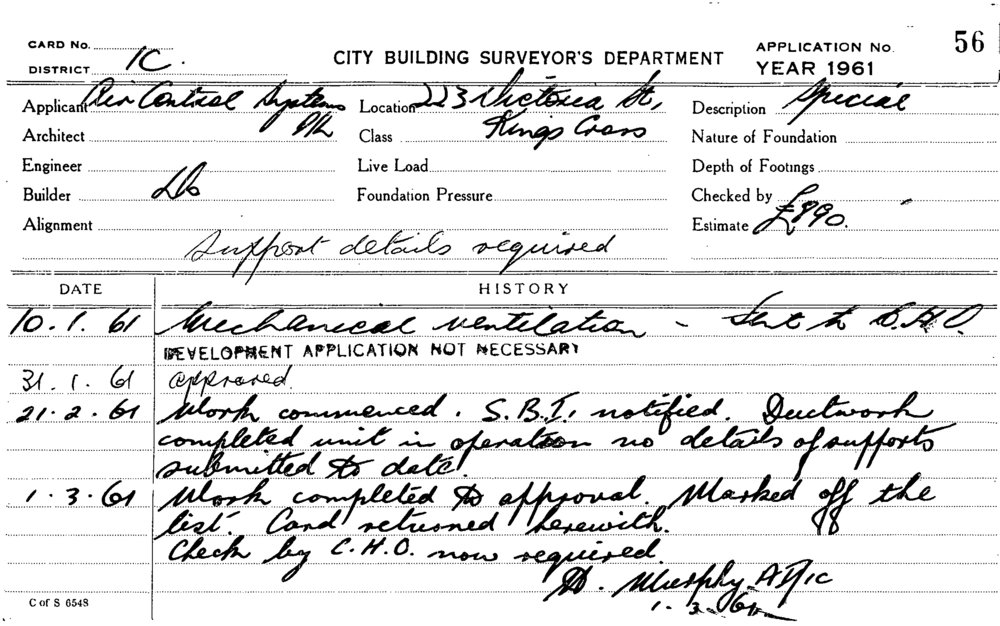 CARD No.
DISTRICT 1C.
CITY BUILDING SURVEYOR'S DEPARTMENT
APPLICATION No. 56
YEAR 1961
Applicant Air Control Systems P/L
Location 223 Victoria St, Kings Cross
Description Special
Architect
Class
Nature of Foundation
Engineer
Live Load
Depth of Footings
Builder Do
Foundation Pressure
Checked by
Alignment
Estimate £890.
Support details required
DATE HISTORY
10.1.61 Mechanical ventilation - Sent to C.H.O.
DEVELOPMENT APPLICATION NOT NECESSARY
31.1.61 approved.
21.2.61 Work commenced. S.B.I. notified. Ductwork
completed unit in operation no details of supports
submitted to date.
1.3.61 Work completed to approval. Marked off the
list. Card returned herewith.
Check by C.H.O. now required
Murphy
1.3.61
C of S 6548